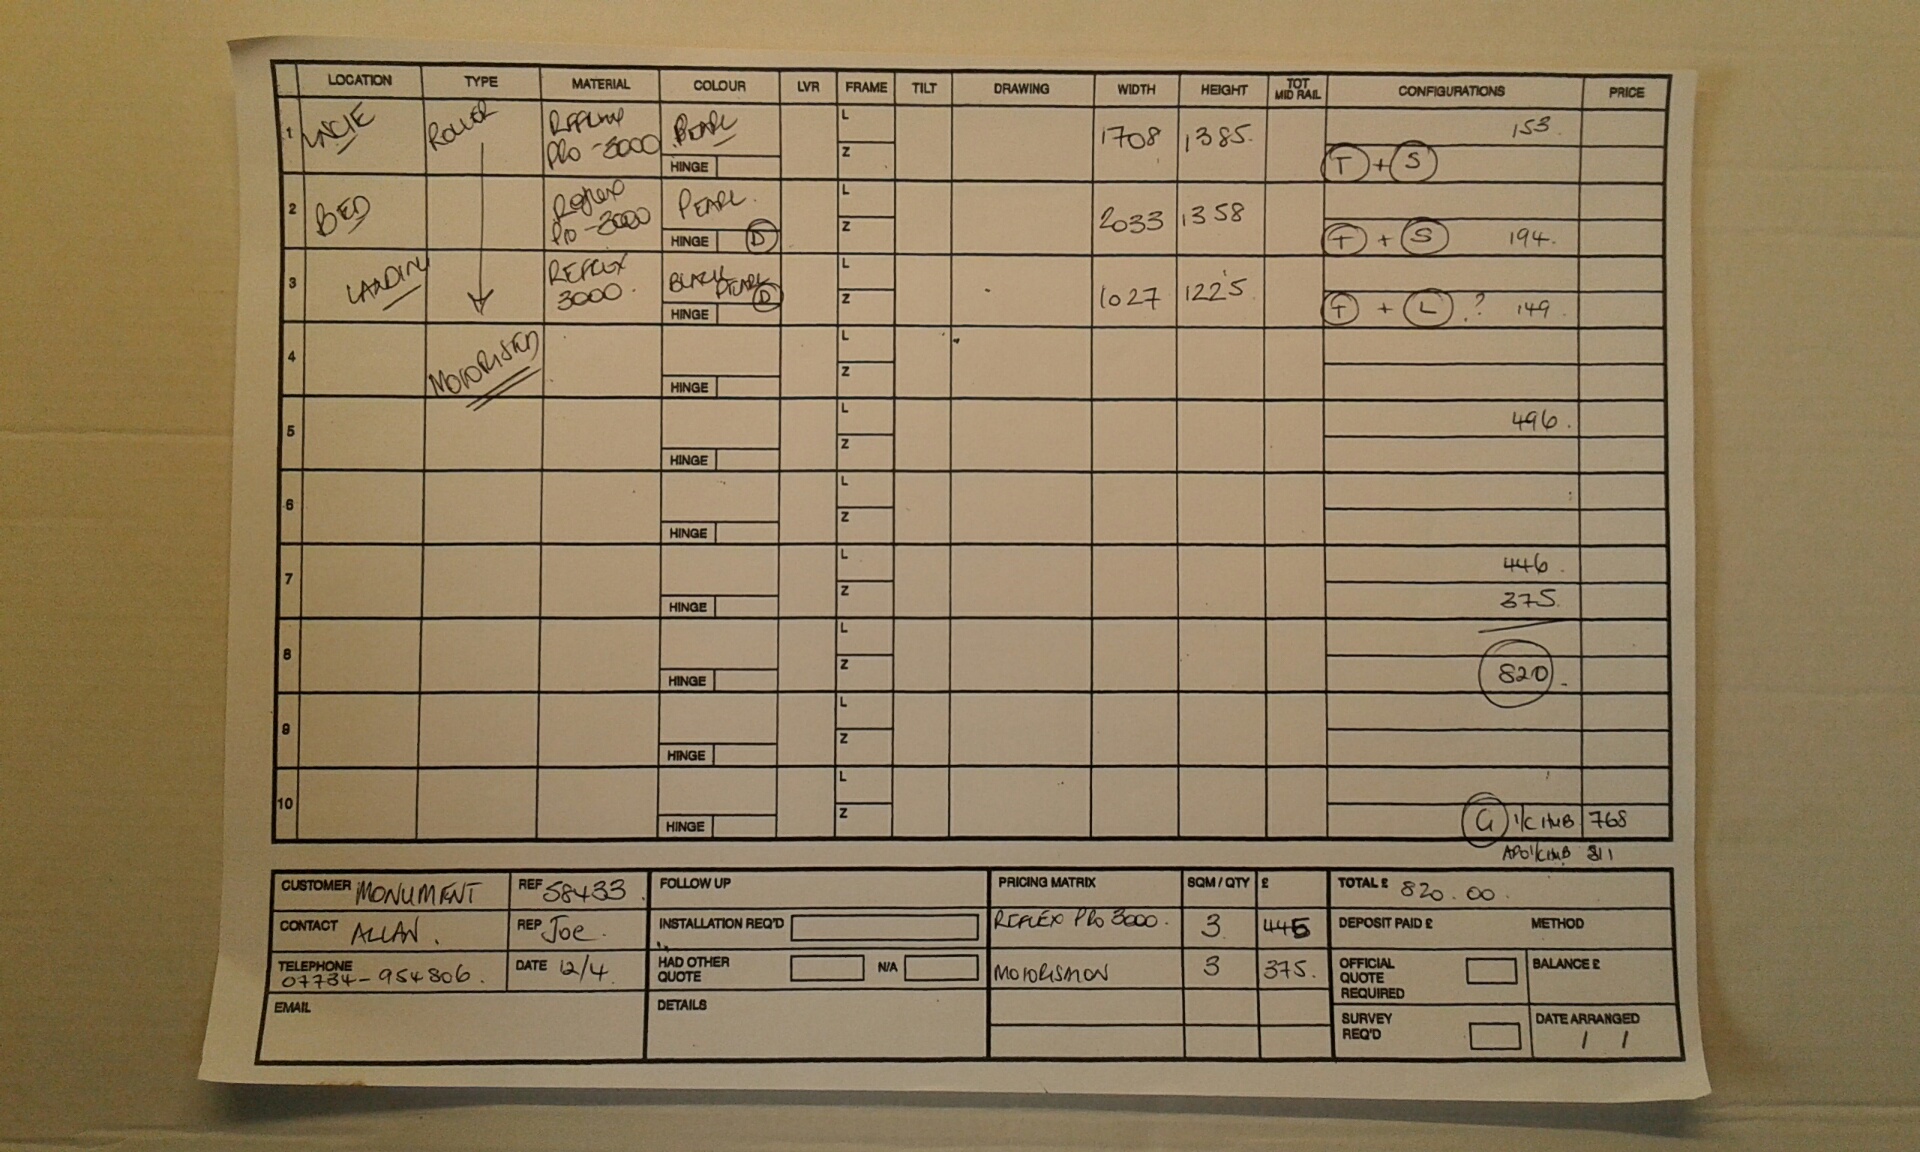 LOCATION TYPE MATERIAL COLOUR LVR FRAME TILT DRAWING WIDTH HEIGHT TOT MID RAIL CONFIGURATIONS PRICE
1 ROLLER PRO -3000 PEARL L 1708 1385. 153.
HINGE Z T + S
2 BED Reflex Pro -3000 PEARL. L 2033 1358
HINGE D Z T + S 194.
3 LANDING REFLEX 3000. BLACK PEARL D L 1027 1225
HINGE Z T + L ? 149
4 MOTORISED L
HINGE Z
5 L 496.
HINGE Z
6 L
HINGE Z
7 L 446.
HINGE Z 375.
8 L
HINGE Z 820.
9 L
HINGE Z
10 L
HINGE Z G 768
811
CUSTOMER MONUMENT REF 58433. FOLLOW UP PRICING MATRIX SQM / QTY £ TOTAL £ 820.00.
CONTACT ALLAN. REP Joe. INSTALLATION REQ'D REFLEX PRO 3000. 3 445 DEPOSIT PAID £ METHOD
TELEPHONE 07734-954806. DATE 12/4. HAD OTHER QUOTE N/A 3 375. OFFICIAL QUOTE REQUIRED BALANCE £
EMAIL DETAILS SURVEY REQ'D DATE ARRANGED
/ /